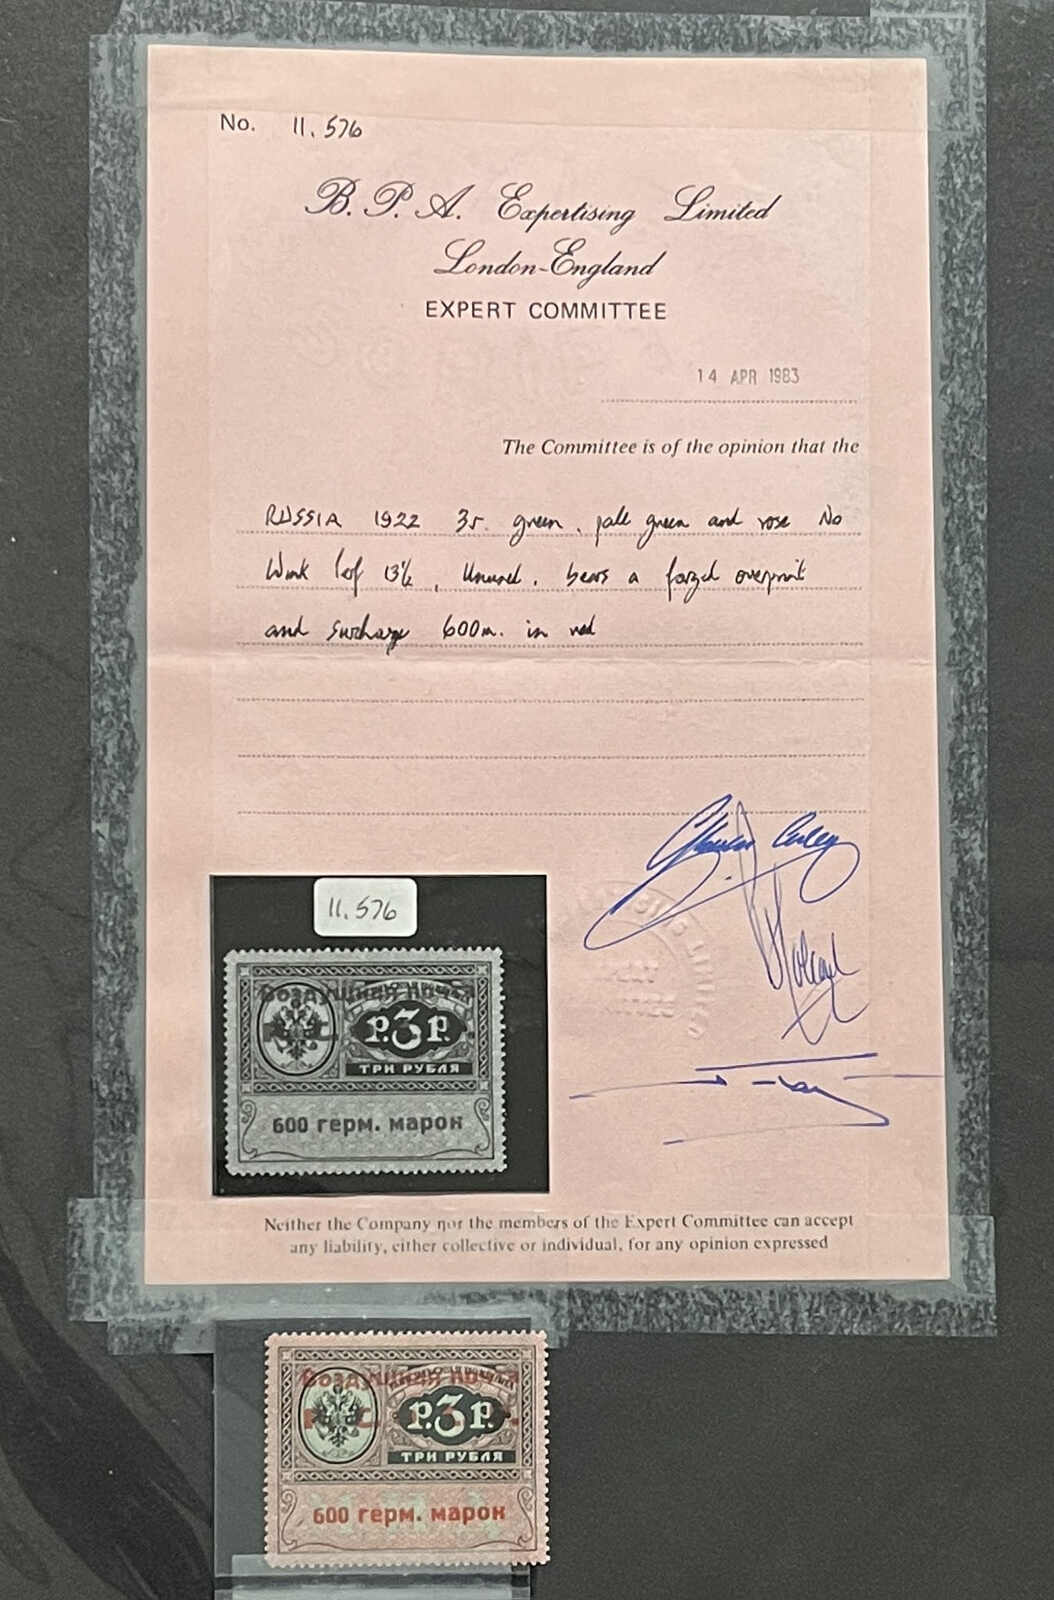 No. 11.576
B. P. A. Expertising Limited
London-England
EXPERT COMMITTEE
14 APR 1983
The Committee is of the opinion that the
RUSSIA 1922 3r. green, pale green and rose No
Wmk Perf 13½, Unused, bears a forged overprint
and surcharge 600m. in red
11.576
Воздушная почта
Р.3Р.
ТРИ РУБЛЯ
600 герм. марок
Neither the Company nor the members of the Expert Committee can accept
any liability, either collective or individual, for any opinion expressed
Воздушная почта
Р.3Р.
ТРИ РУБЛЯ
600 герм. марок